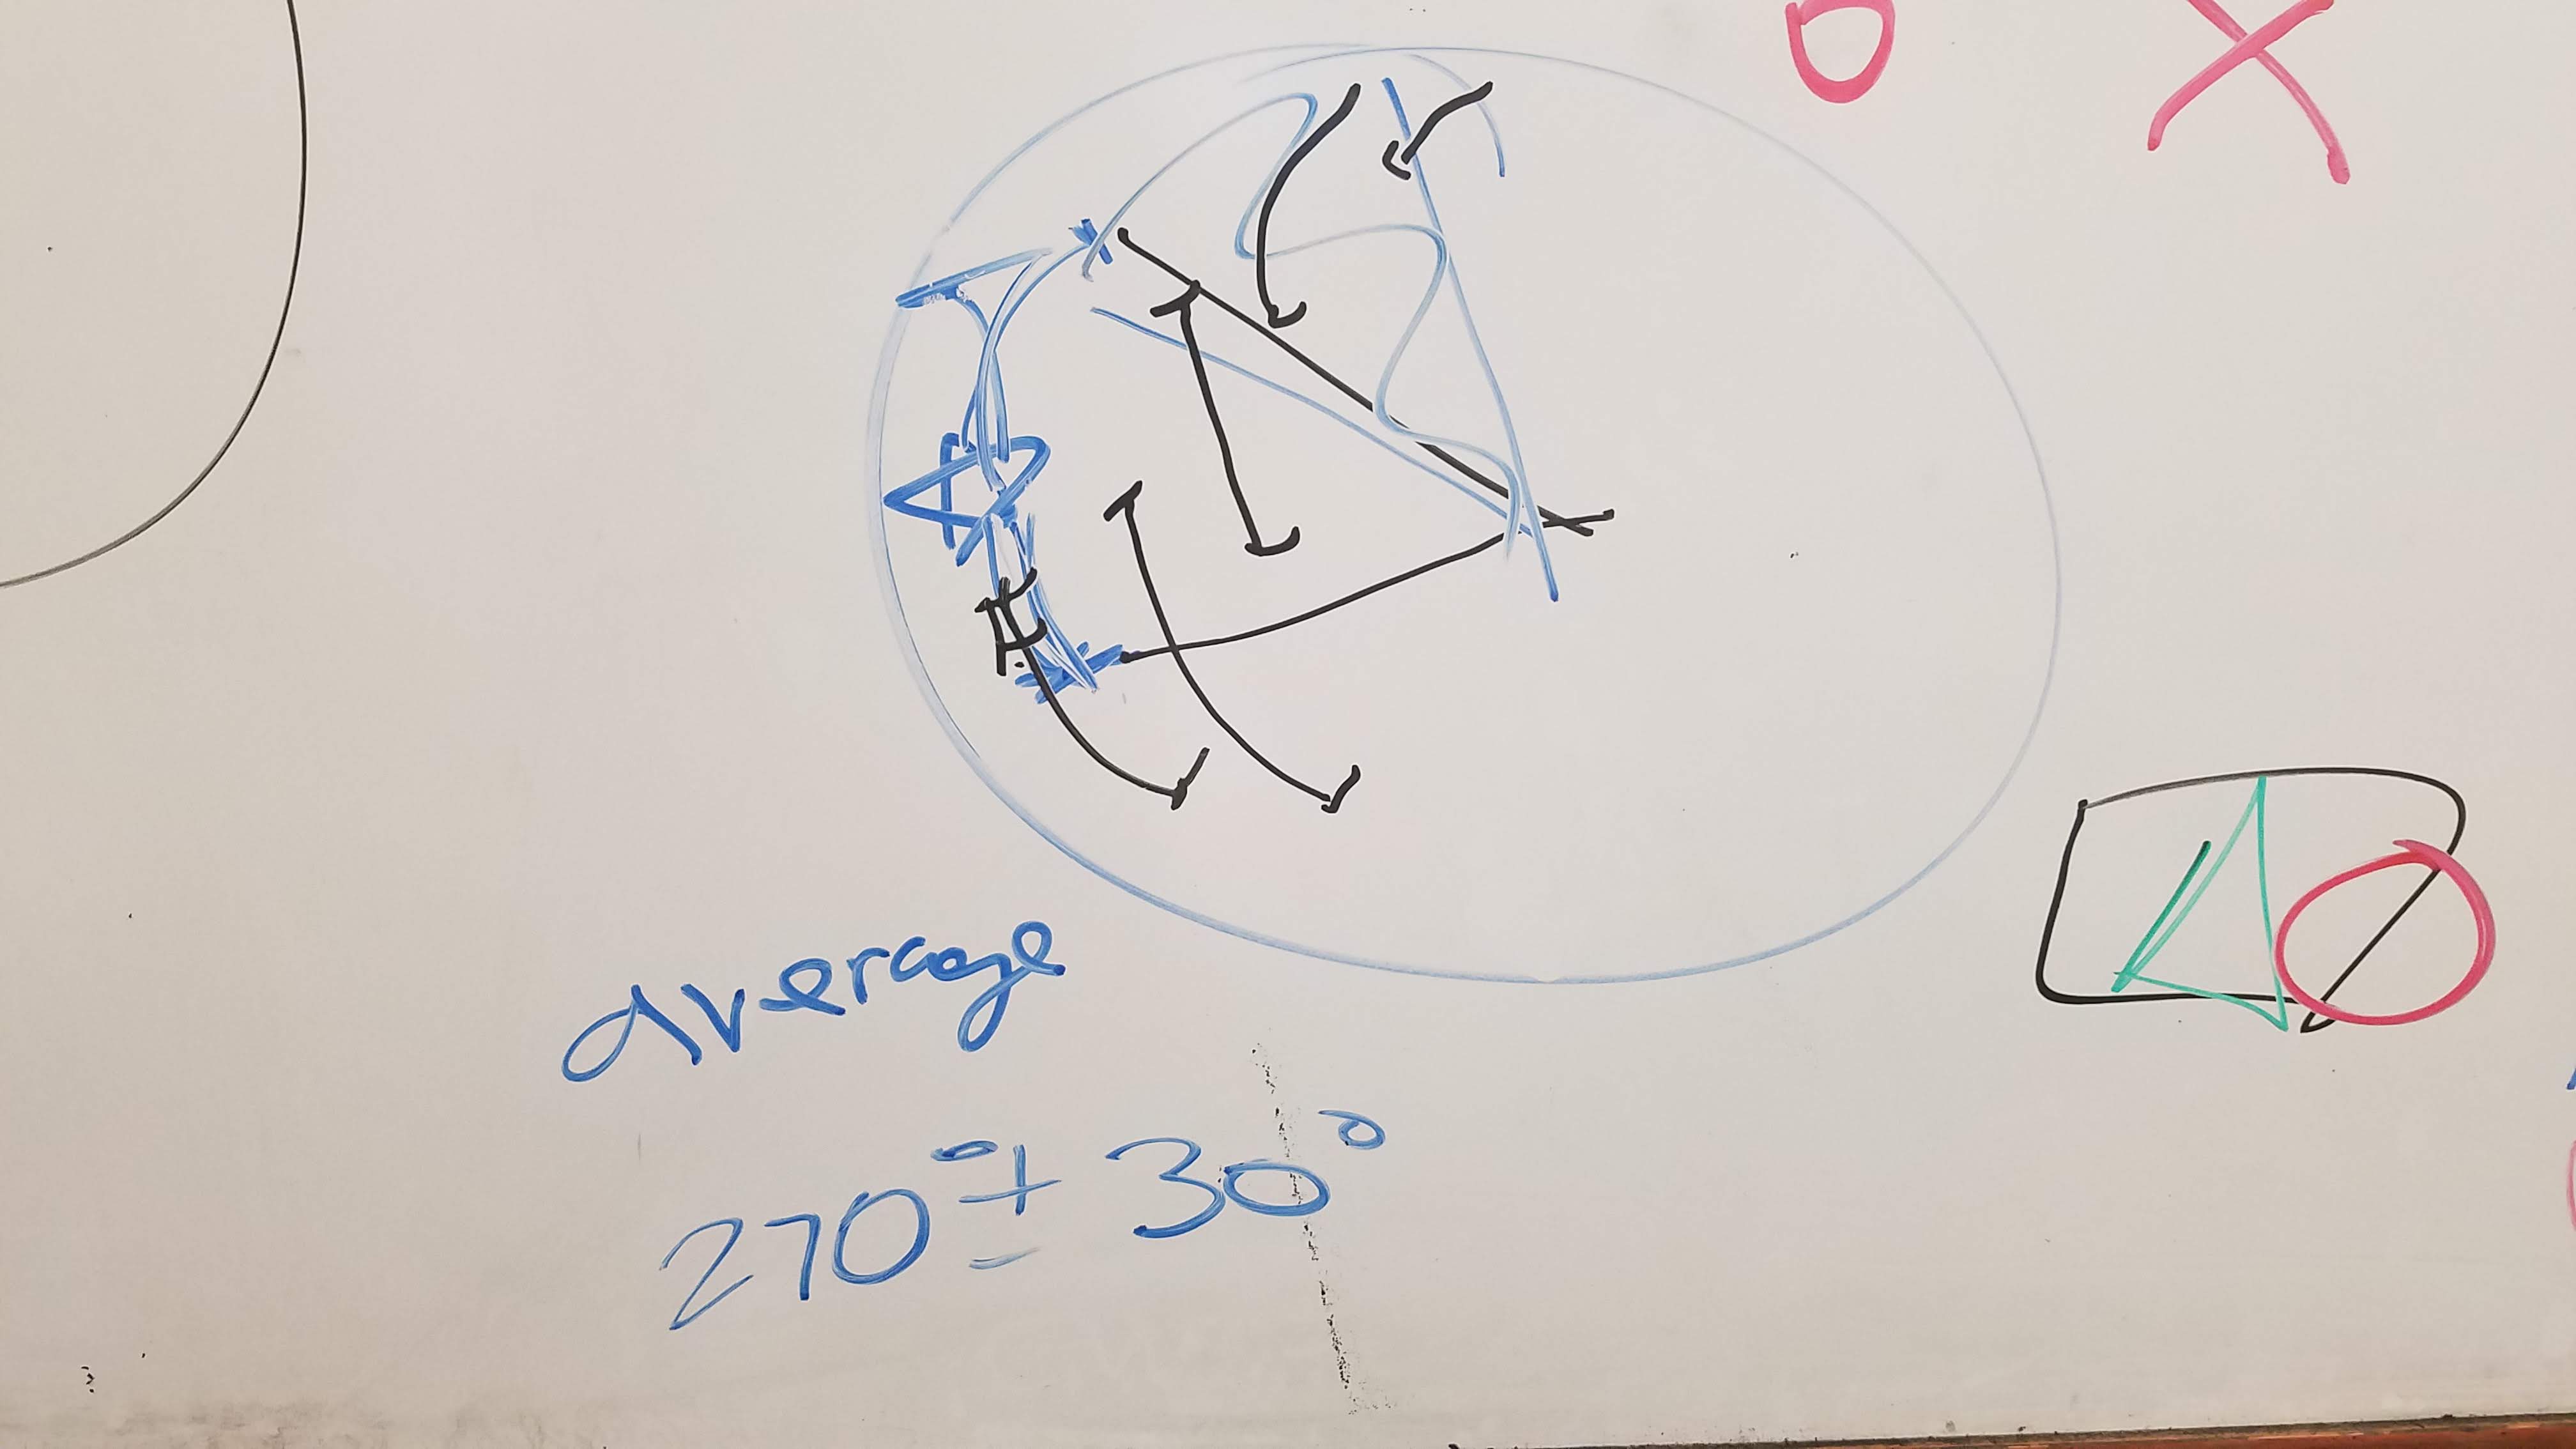 O X
average
270° ± 30°